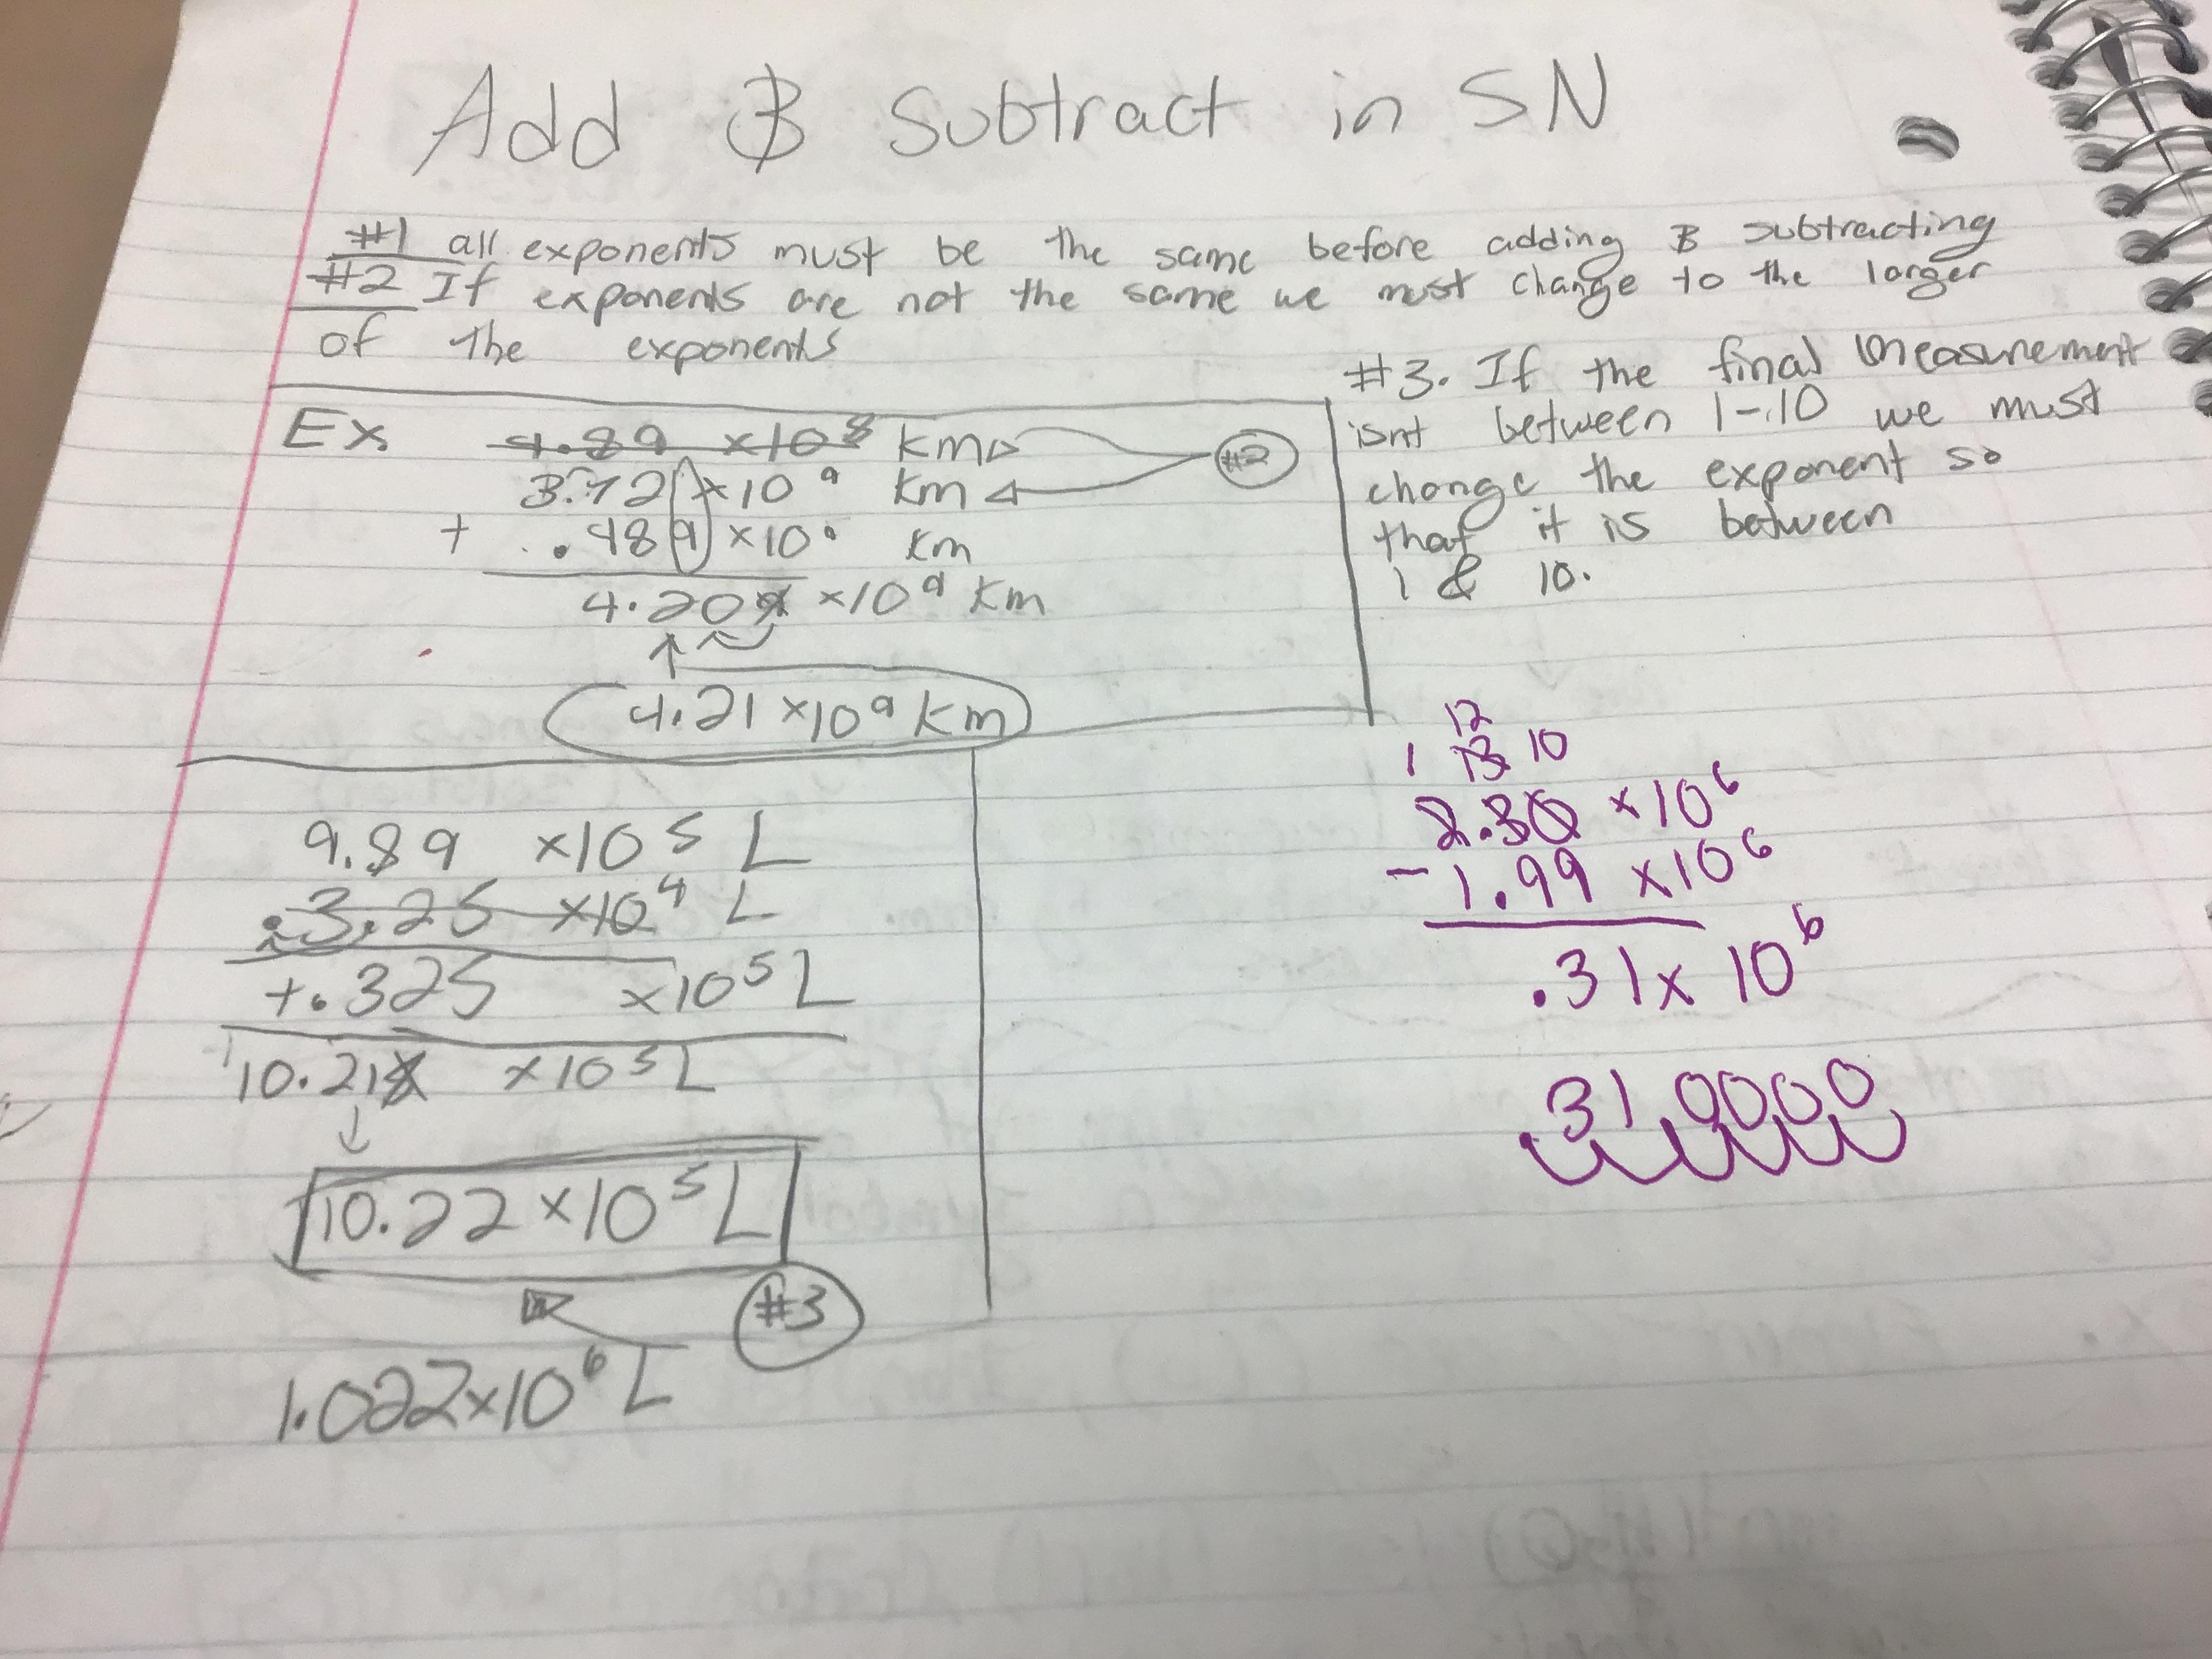 Add & Subtract in SN
#1 all exponents must be the same before adding & subtracting
#2 If exponents are not the same we must change to the larger
of the exponents
#3. If the final measurement
isnt between 1-10 we must
change the exponent so
that it is between
1 & 10.
Ex 4.89 ×10⁸ km
#2
3.72 ×10⁹ km
+ .489 ×10⁹ km
4.209 ×10⁹ km
4.21 ×10⁹ km
9.89 ×10⁵ L
3.25 ×10⁴ L
+.325 ×10⁵ L
10.218 ×10⁵ L
10.22 ×10⁵ L
#3
1.022×10⁶ L
12
1 13 10
2.30 ×10⁶
- 1.99 ×10⁶
.31 × 10⁶
310000